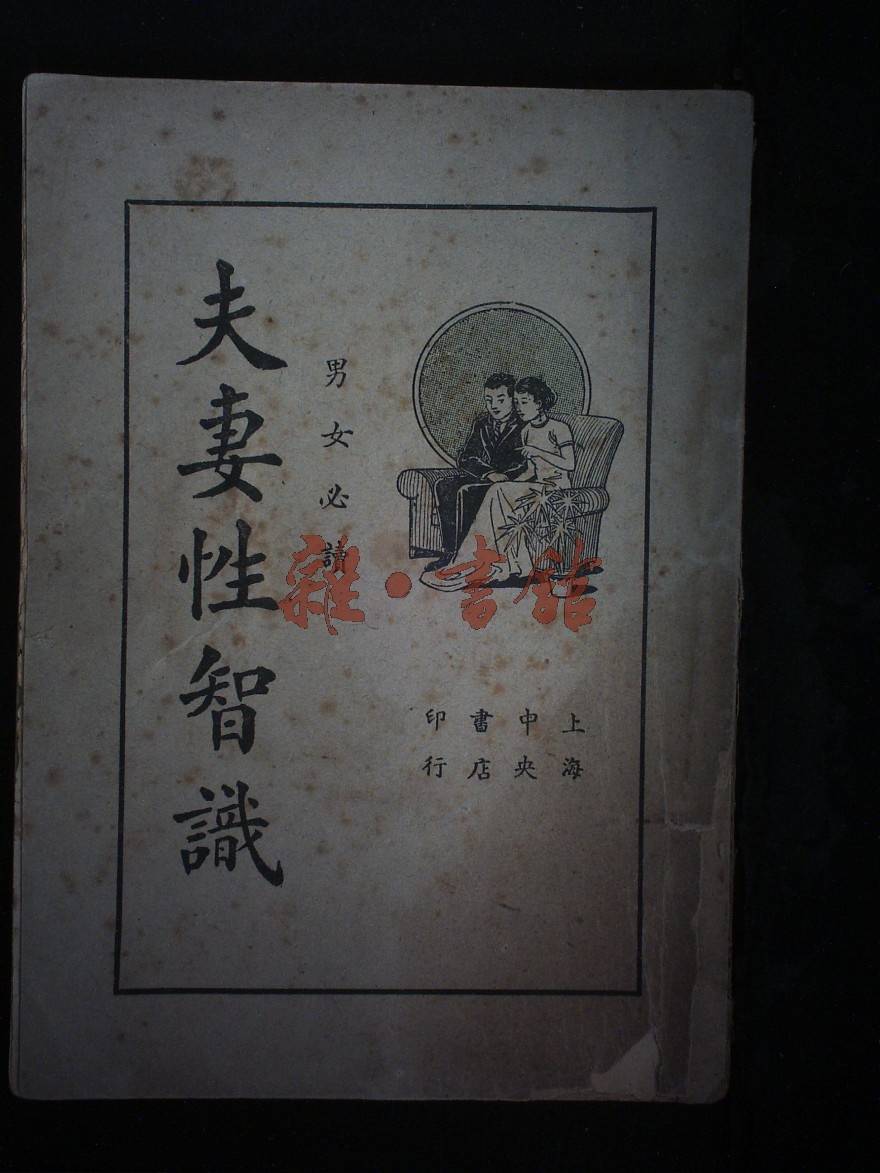 夫妻性智識
男女必讀
上海
中央
書店
印行
雜·書館